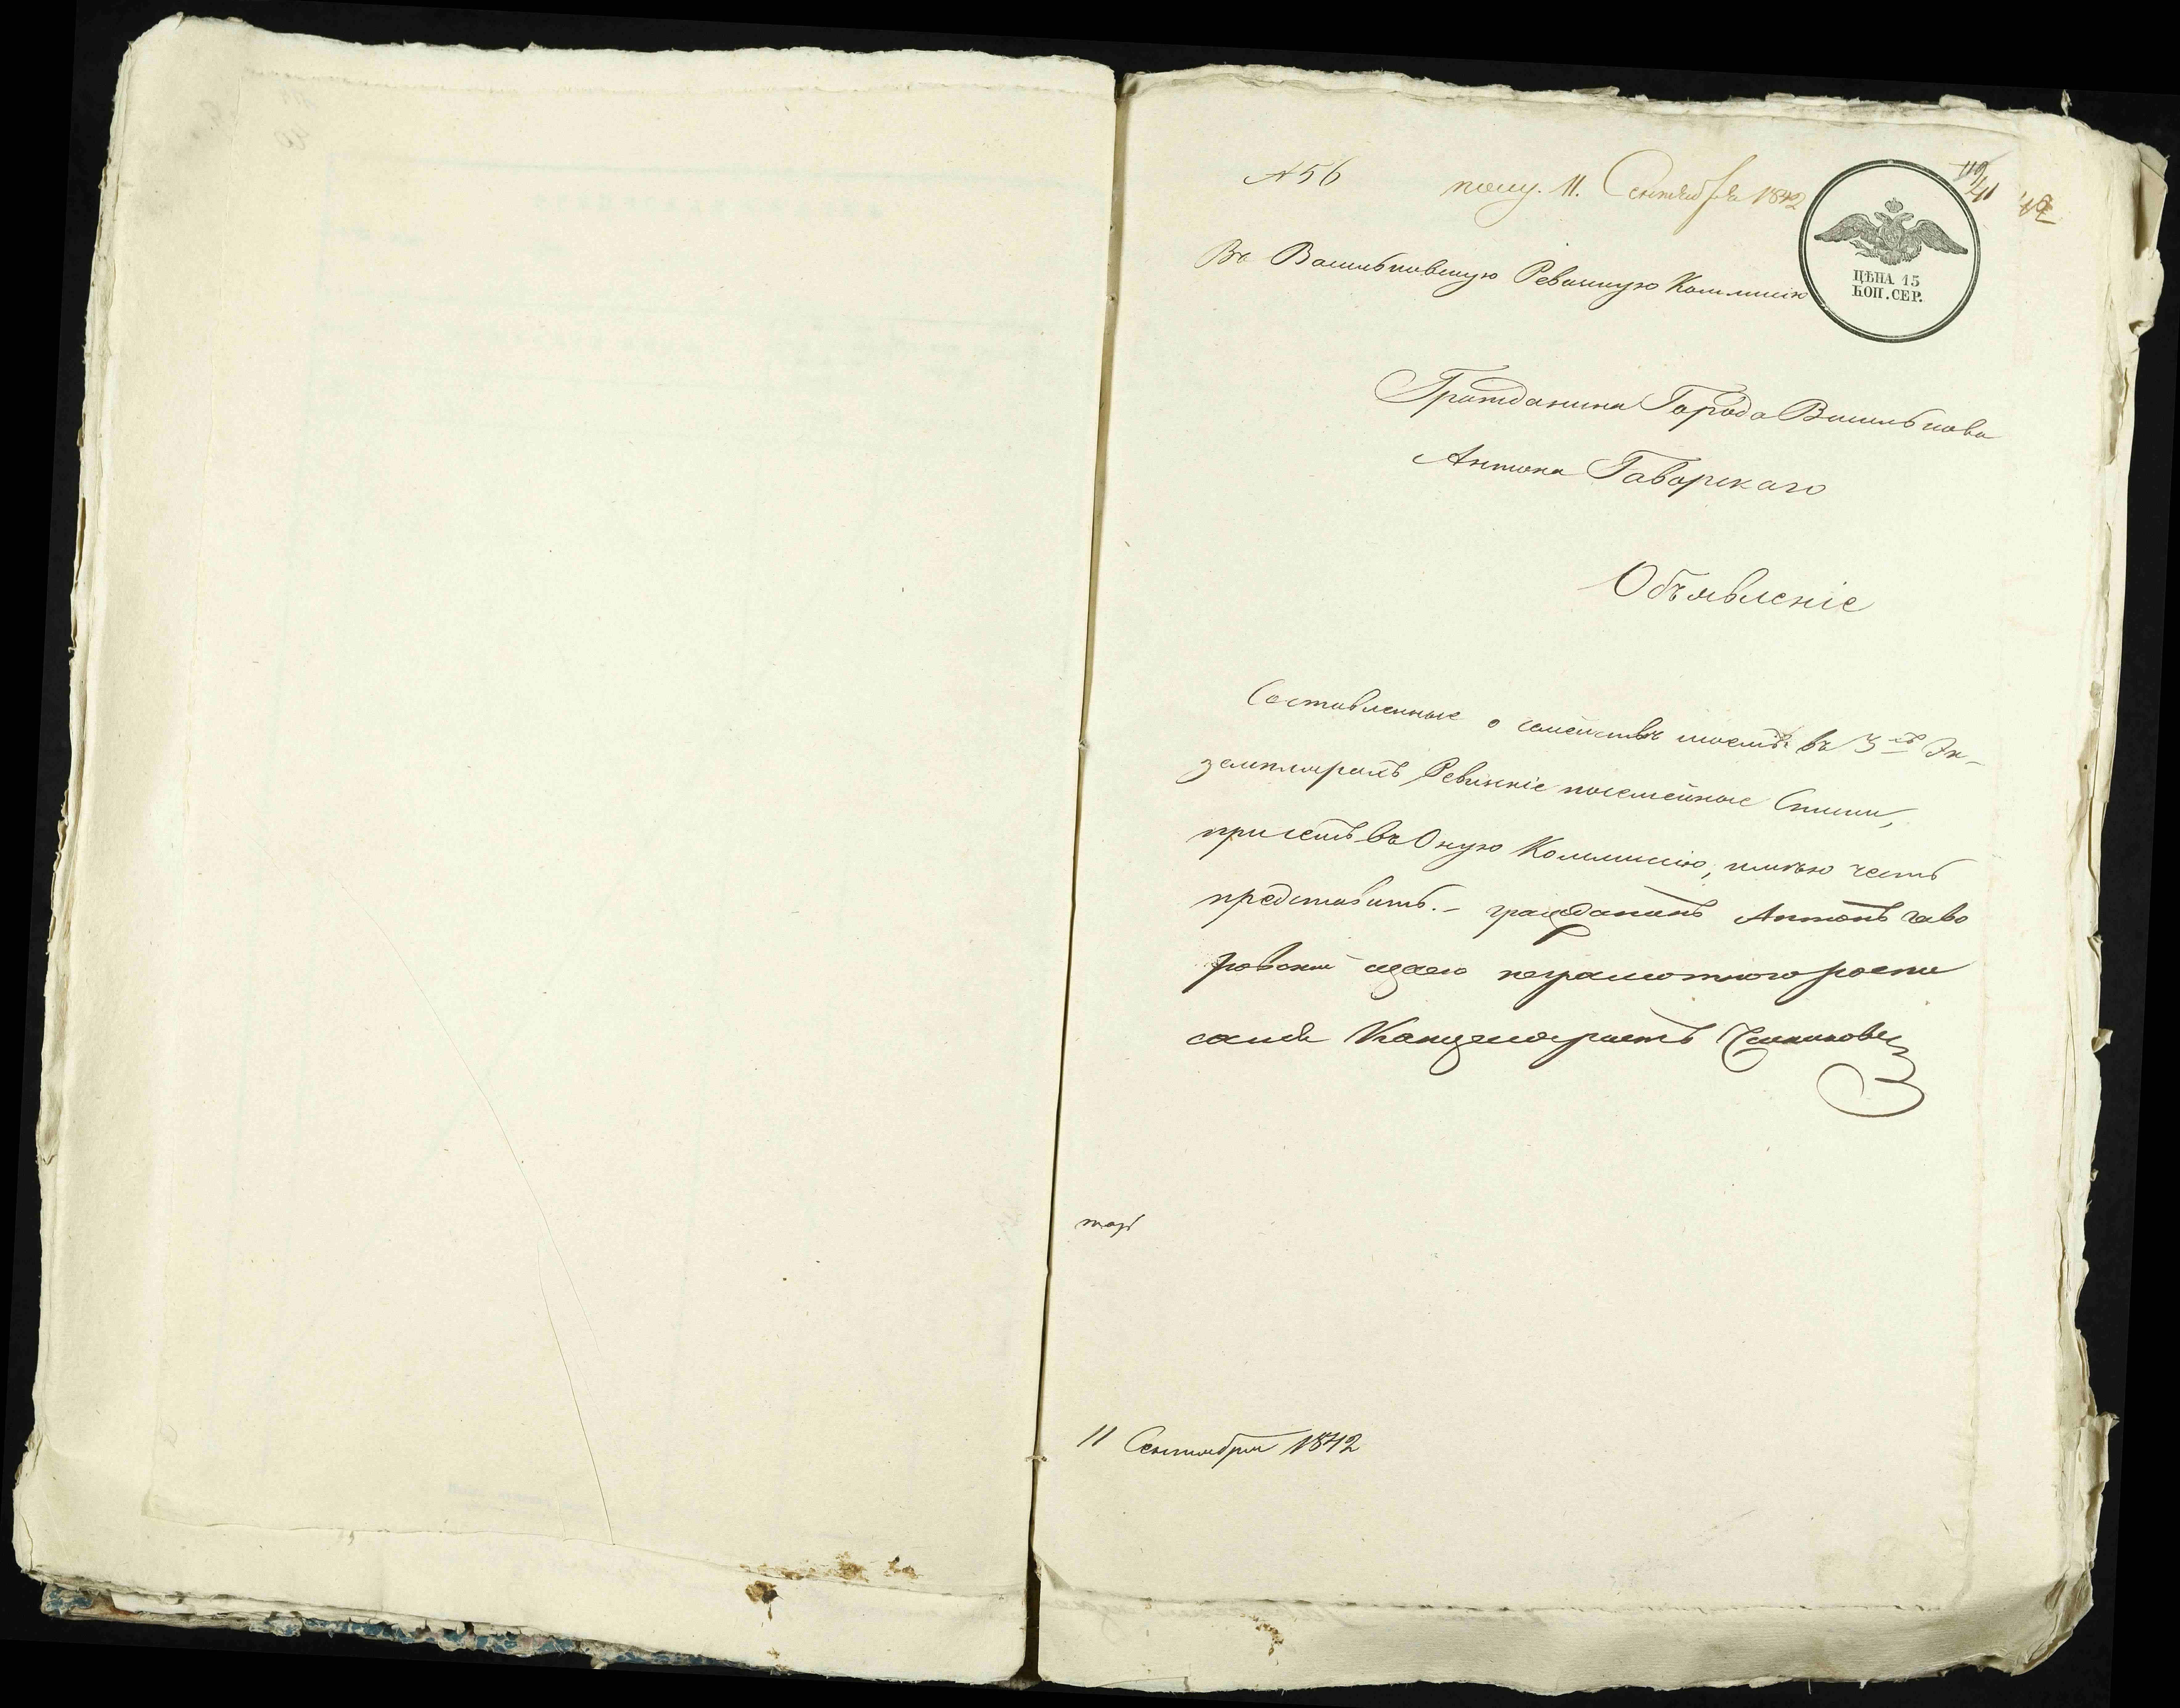 № 56
полу. 11. Сентября 1842
ЦѢНА 15
КОП. СЕР.
Въ Васильковскую Ревизкую Коммисію
Гражданина Города Василькова
Антона Гаворскаго
Объявленіе
Составленные о семействѣ моемъ въ 3хъ Эк-
земплярахъ Ревизкіе посемейные Списки,
при семъ въ Оную Коммиссію, имѣю честь
представить.- гражданинъ Антонъ гаво
ровский неграмотного роспи
Канцеляристъ
11 Сентября 1842